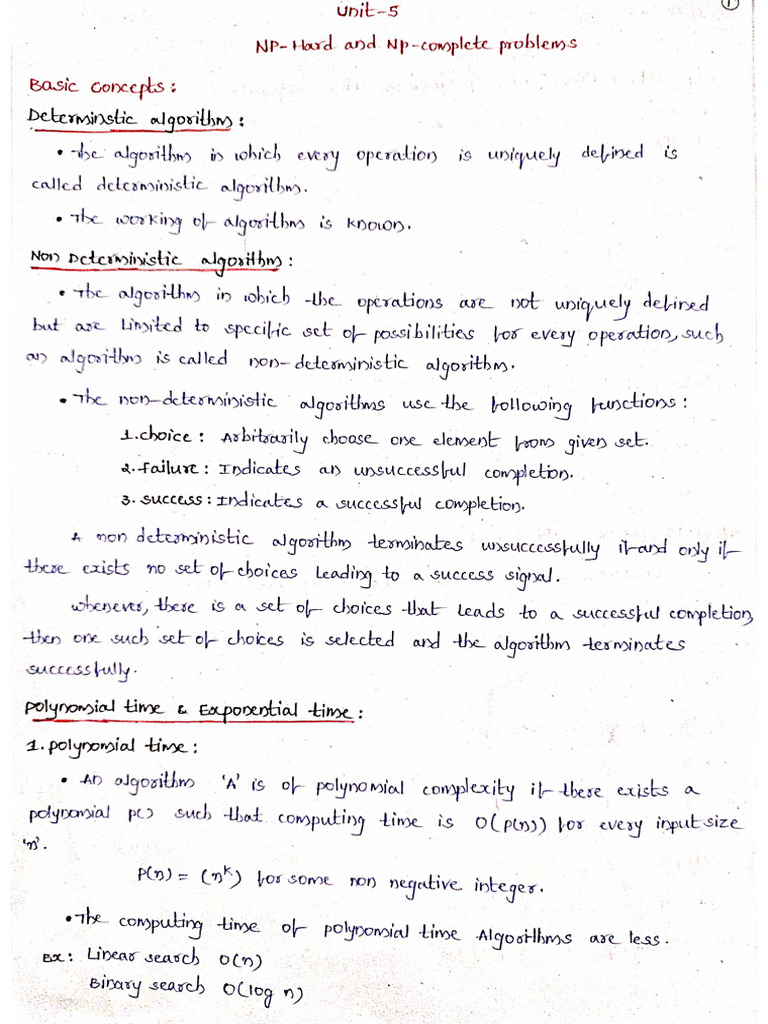 1
Unit-5
NP-Hard and Np-complete problems
Basic Concepts:
Deterministic algorithm:
• The algorithm in which every operation is uniquely defined is
called deterministic algorithm.
• The working of algorithm is known.
Non Deterministic algorithm:
• The algorithm in which the operations are not uniquely defined
but are limited to specific set of possibilities for every operation, such
an algorithm is called non-deterministic algorithm.
• The non-deterministic algorithms use the following functions:
1. choice: Arbitrarily choose one element from given set.
2. failure: Indicates an unsuccessful completion.
3. success: Indicates a successful completion.
A non deterministic algorithm terminates unsuccessfully if and only if
there exists no set of choices leading to a success signal.
whenever, there is a set of choices that leads to a successful completion,
then one such set of choices is selected and the algorithm terminates
successfully.
Polynomial time & Exponential time:
1. polynomial time:
• An algorithm 'A' is of polynomial complexity if there exists a
polynomial p() such that computing time is O(p(n)) for every input size
'n'.
P(n) = (n^k) for some non negative integer.
• The computing time of polynomial time Algorithms are less.
Ex: Linear search O(n)
Binary search O(log n)